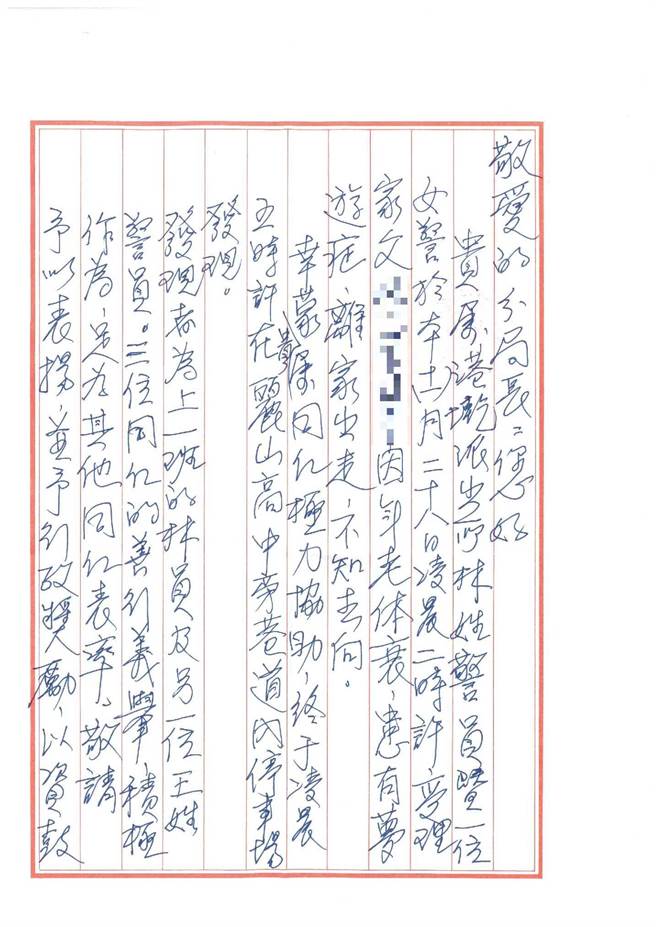 敬愛的分局長：您好
貴屬港墘派出所林姓警員暨一位
女警於本十一月二十八日凌晨二時許受理
家父因年老体衰，患有夢
遊症，離家出走，不知去向。
幸蒙貴屬同仁極力協助，終于凌晨
五時許在麗山高中旁巷道內停車場
發現。
發現者為上一班的林員及另一位王姓
警員。三位同仁的善行義舉，積極
作為，足為其他同仁表率。敬請
予以表揚，並予行政獎勵，以資鼓